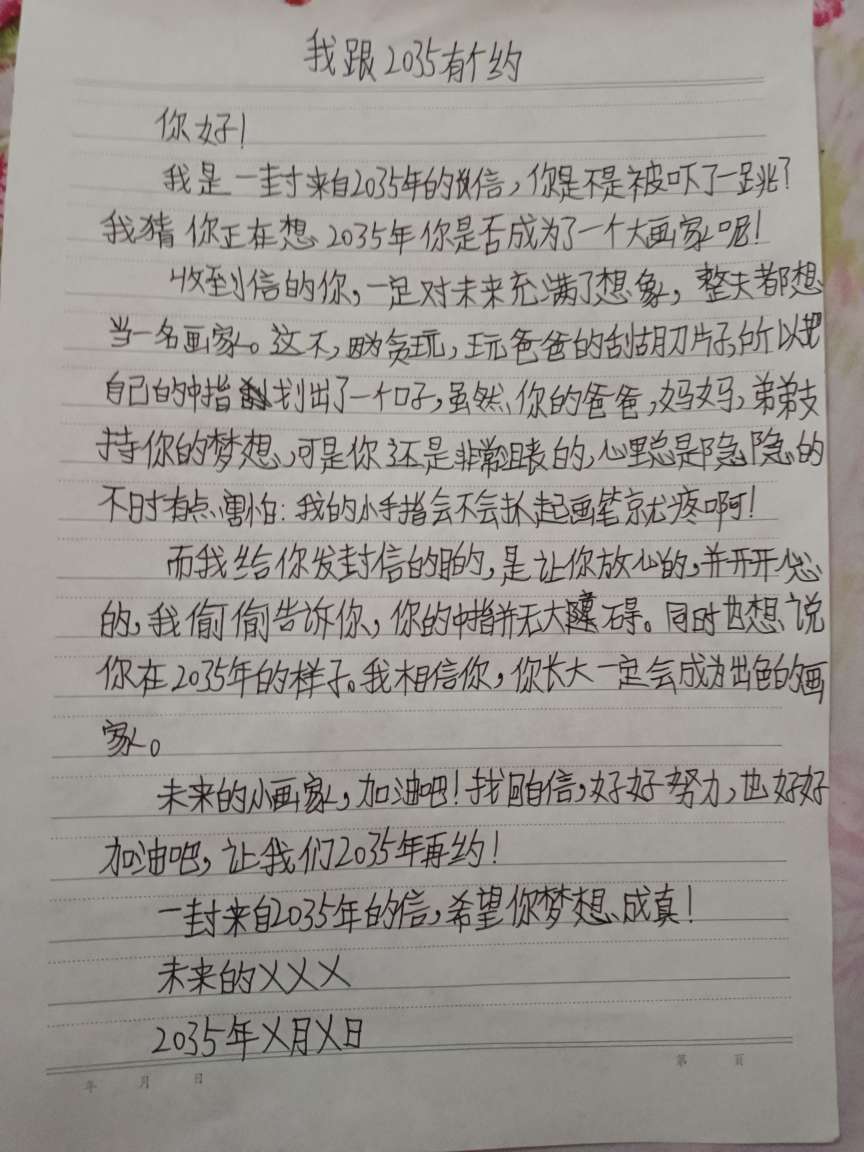 我跟2035有个约
你好!
我是一封来自2035年的信,你是不是被吓了一跳?
我猜你正在想2035年你是否成为了一个大画家呢!
收到信的你,一定对未来充满了想象,整天都想
当一名画家。这不,因为贪玩,玩爸爸的刮胡刀片子,所以把
自己的中指划出了一个口子,虽然你的爸爸,妈妈,弟弟支
持你的梦想,可是你还是非常沮丧的,心里总是隐隐的
不时有点害怕:我的小手指会不会拿起画笔就疼啊!
而我给你发封信的目的,是让你放心的,并开开心心
的,我偷偷告诉你,你的中指并无大碍。同时也想说
你在2035年的样子。我相信你,你长大一定会成为出色的画
家。
未来的小画家,加油吧!找回自信,好好努力,也好好
加油吧,让我们2035年再约!
一封来自2035年的信,希望你梦想成真!
未来的XXX
2035年X月X日
年 月 日 第 页